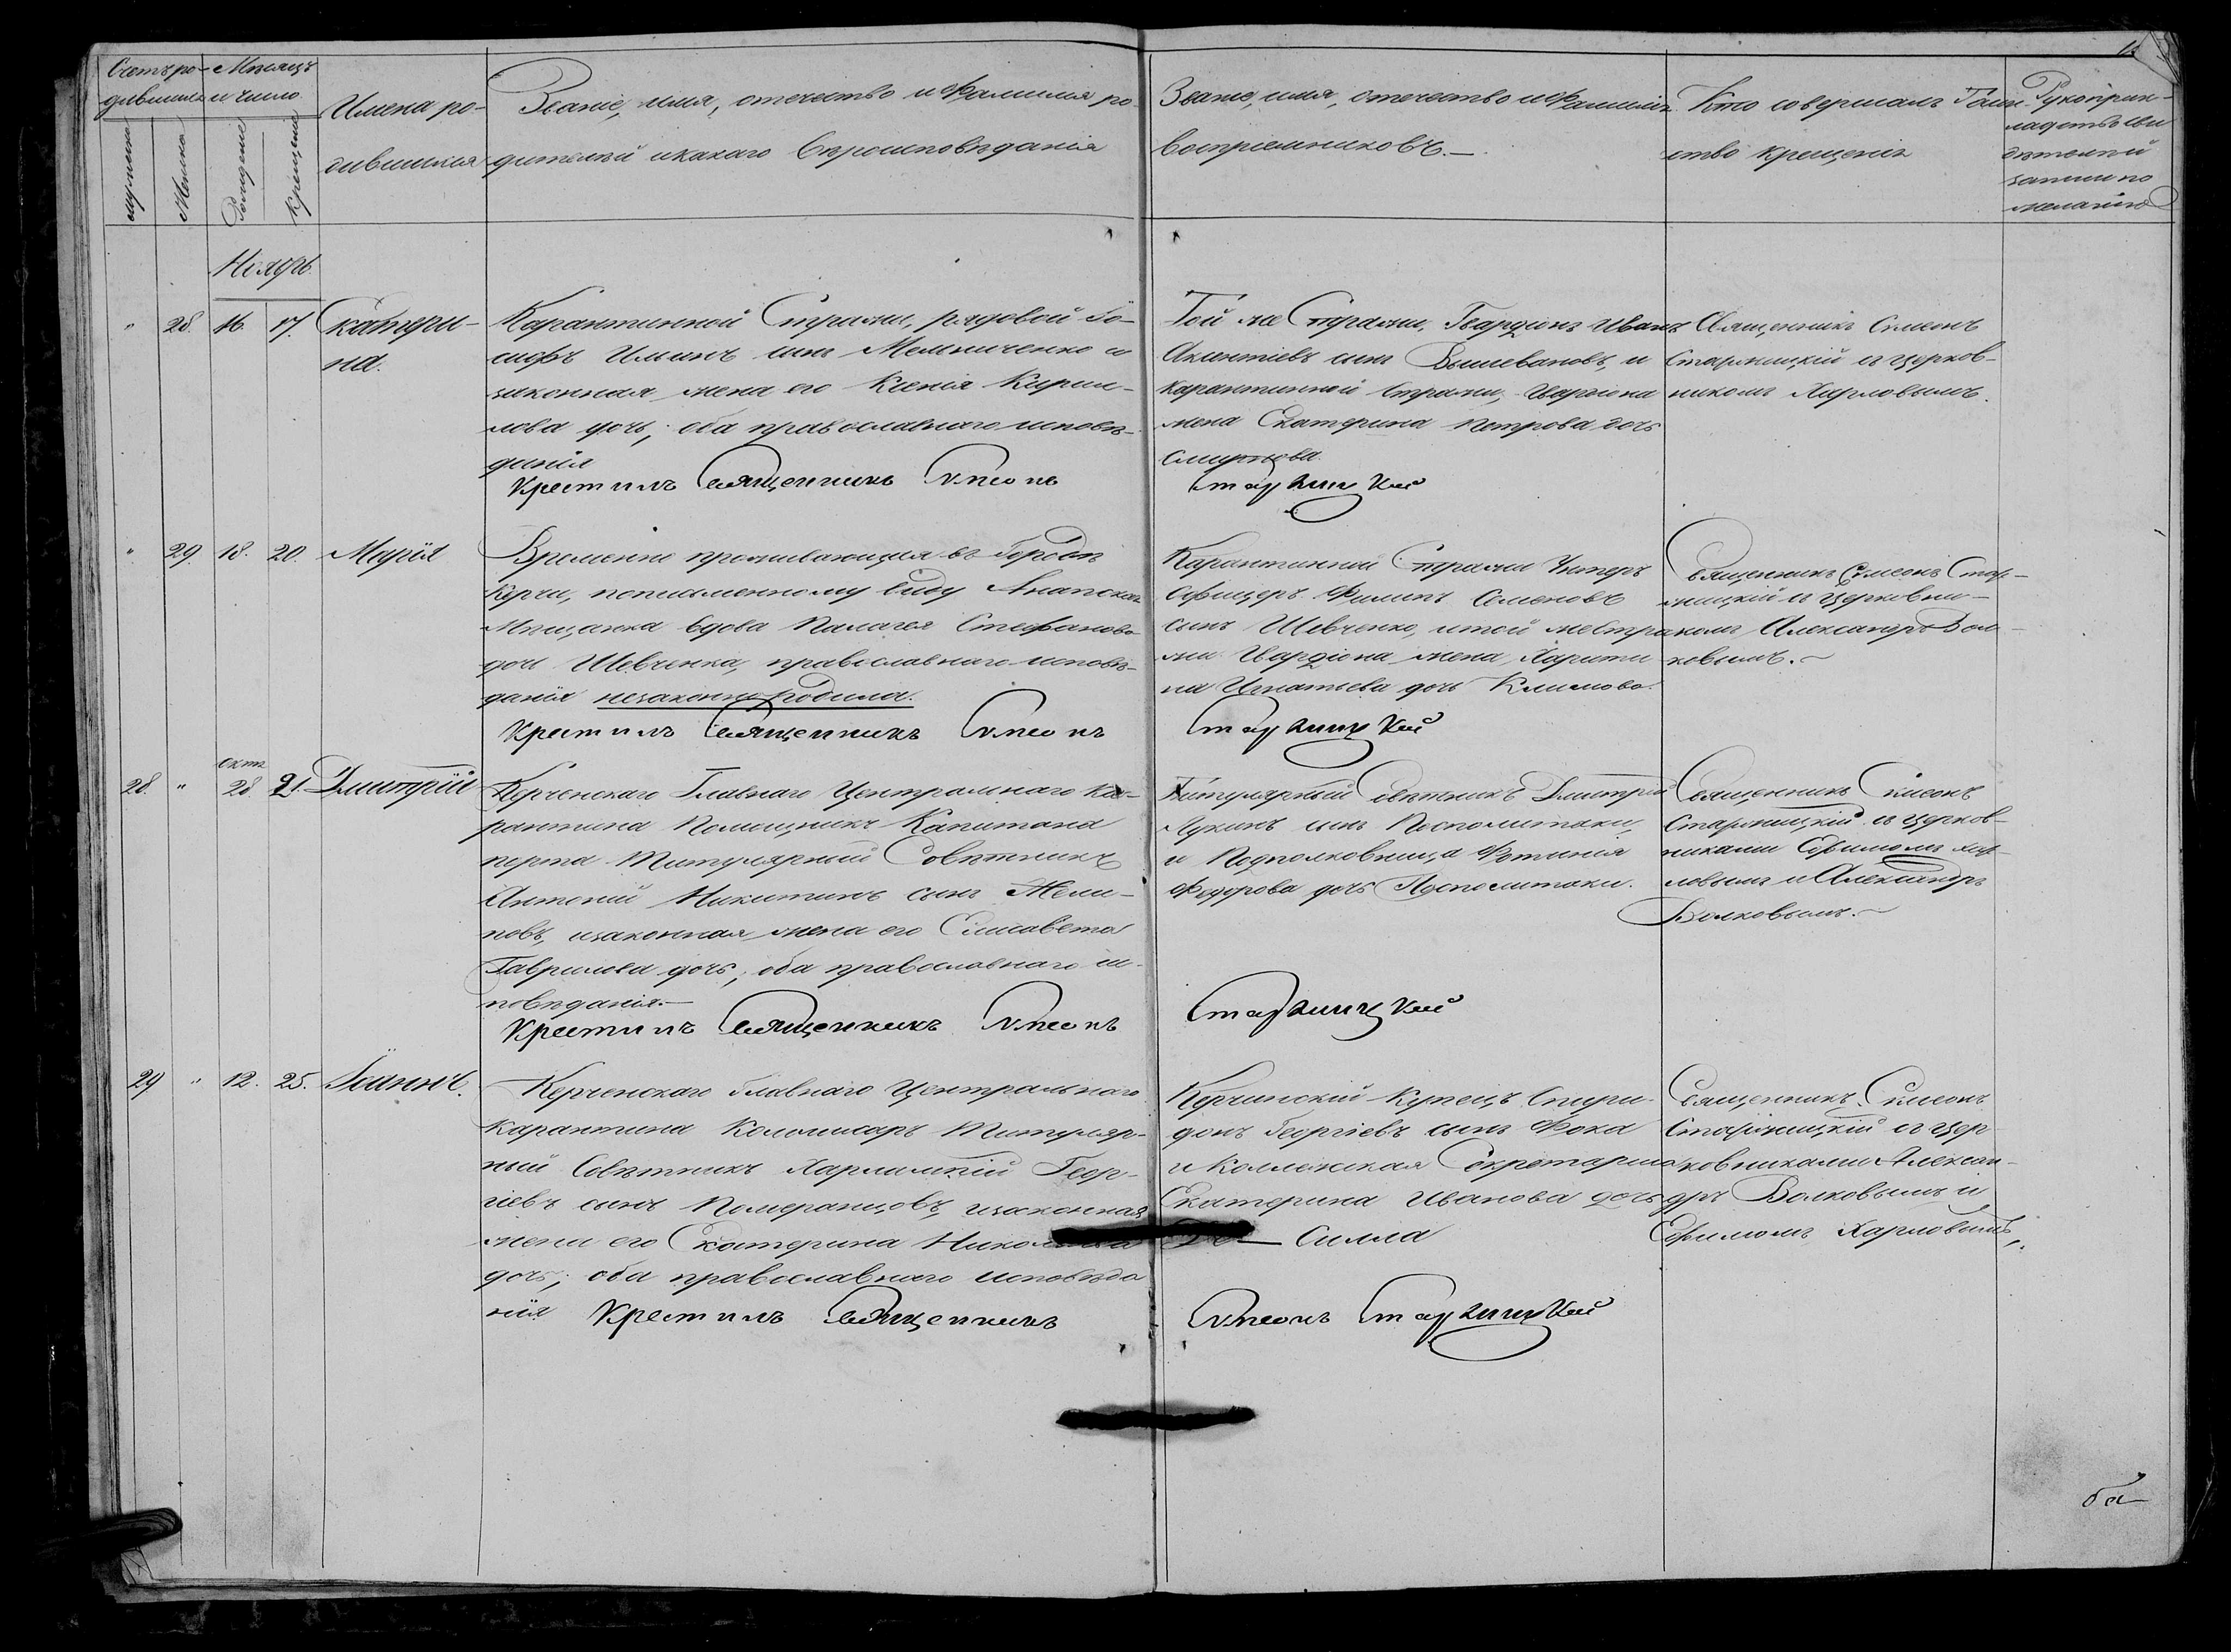 Счетъ ро-
дившихся
Мѣсяцъ
и число
Мужеска
Женска
Рожденія
Крещенія
Имена ро-
дившихся
Званіе, имя, отечество и Фамилия ро-
дителей и какаго вѣроисповѣданія
Званіе, имя, отечество и Фамилія
воспріемниковъ.—
Кто совершалъ Таин-
ство крещенія
Рукоприк-
ладство сви
дѣтелей
записи по
желанію
Ноябрь
" 28. 16. 17. Екатери-
на.
Карантинной Стражи, рядовой Іо-
сифъ Ильинъ сынъ Мельниченко и
законная жена его Ксенія Кирил-
лова дочь; оба православнаго исповѣ-
данія
Крестилъ Священникъ Симеонъ
Той же Стражи, Гвардіонъ Иванъ
сынъ и
Карантинной Стражи, Гвардіона
жена Екатерина Петрова дочь
Смирнова.
Старжицкій
Священникъ Симеонъ
Старжицкій и церков-
никомъ Харловымъ.
" 29. 18. 20. Марія
Временно проживающая въ Городѣ
Керчи, по письменному виду Анапская
Мѣщанка вдова Палагея Стефанова
дочь Шевченка, православнаго исповѣ-
данія незаконно родила.
Крестилъ Священникъ Симеонъ
Карантинной Стражи Унтеръ
Офицеръ Филипъ Семеновъ
сынъ Шевченко, и той же Стра
жи Гвардіона жена, Харити
на Игнатьева дочь Климова.
Старжицкій
Священникъ Симеонъ Стар-
жицкій и церковни-
комъ Александръ Вол
ковымъ.
28. " окт. 28. 21. Дмитрій
Керченскаго Главнаго Центральнаго Ка-
рантина Помощникъ Капитана
порта Титулярный Совѣтникъ
Антоній Никитинъ сынъ
новъ, и законная жена его Елисавета
Гаврилова дочь; оба православнаго ис-
повѣданія.—
Крестилъ Священникъ Симеонъ
Титулярный Совѣтникъ Дмитрій
Лукинъ сынъ Посполитаки,
и Подполковница Фотинія
Федорова дочь Посполитаки.
Старжицкій
Священникъ Симеонъ
Старжицкій и церков-
никами Ефимомъ Хар-
ловымъ и Александръ
Волковымъ.
29 " 12. 25. Іоаннъ.
Керченскаго Главнаго Центральнаго
Карантина Коммисаръ Титуляр-
ный Совѣтникъ Харлампій Геор-
гіевъ сынъ Померанцовъ, и законная
жена его Екатерина
дочь; оба православнаго исповѣда
нія Крестилъ Священникъ
Керчинскій Купецъ Спири-
донъ Георгіевъ сынъ Фока
и Коллежская Секретарша
Екатерина Иванова дочь
Силла
Симеонъ Старжицкій
Священникъ Симеонъ
Старжицкій и цер
ковниками Алексан-
дръ Волковымъ и
Ефимомъ Харловымъ.